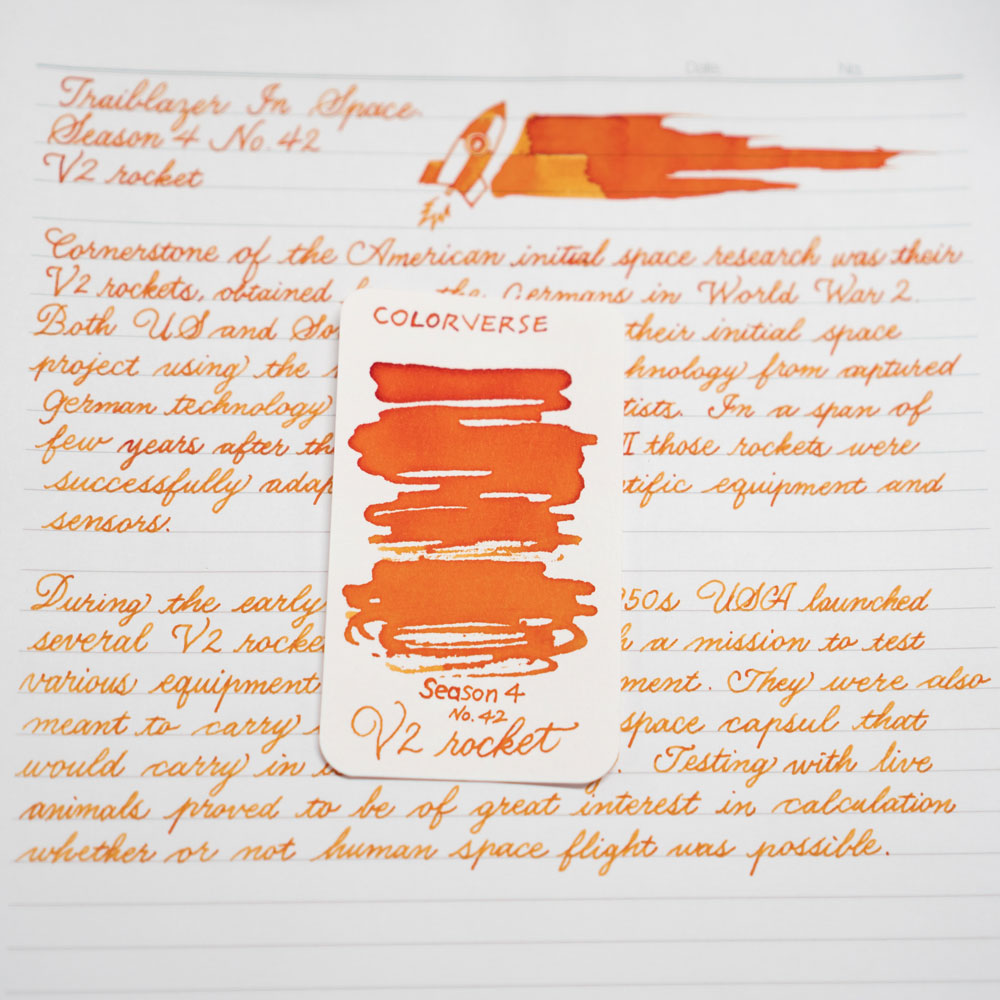 Date No.
Trailblazer In Space
Season 4 No. 42
V2 rocket
Cornerstone of the American initial space research was their
V2 rockets, obtained the Germans in World War 2.
Both US and their initial space
project using the from captured
German technology In a span of
few years after those rockets were
successfully equipment and
sensors.
During the early USA launched
several V2 a mission to test
various equipment They were also
meant to carry space capsul that
would carry in Testing with live
animals proved to be of great interest in calculation
whether or not human space flight was possible.
COLORVERSE
Season 4
No. 42
V2 rocket